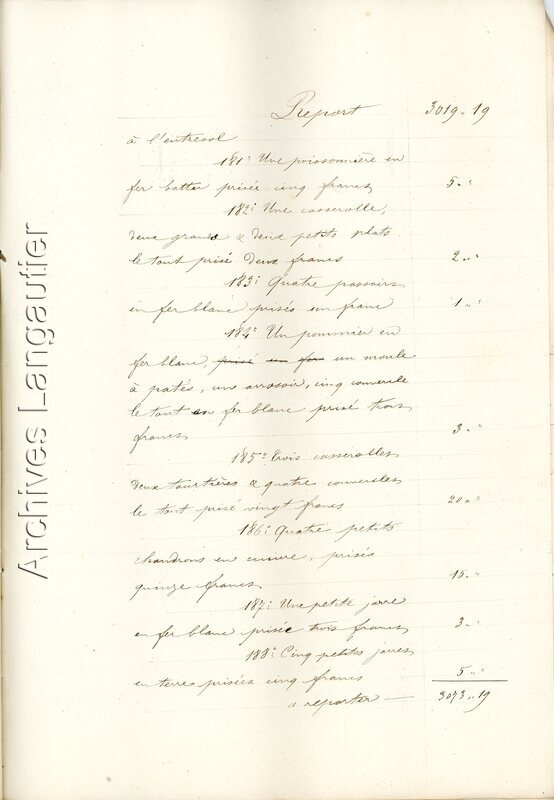 Report 3019 .. 19
à l'entresol
181° Une poissonnière en
fer battu prisée cinq francs 5 .. "
182° Une casserolle,
deux grands & deux petits plats
le tout prisé deux francs 2 .. "
183° Quatre passoirs
en fer blanc prisés un franc 1 .. "
184° Un pommier en
fer blanc, prisé un fra un moule
à patés, un arrosoir, cinq convercle
le tout en fer blanc prisé trois
francs 3 .. "
185° Trois casserolles
deux tourtières & quatre convercles
le tout prisé vingt francs 20 .. "
186° Quatre petits
chaudrons en cuivre, prisés
quinze francs 15 .. "
187° Une petite jarre
en fer blanc prisée trois francs 3 .. "
188° Cinq petites jarres
en terres prisées cinq francs 5 .. "
a reporter — 3073 .. 19
Archives Langautier